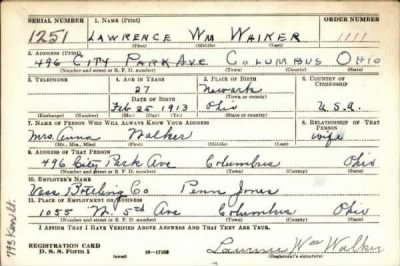 SERIAL NUMBER 1. NAME (Print) ORDER NUMBER
1251 LAWRENCE WM WALKER 1111
(First) (Middle) (Last)
2. ADDRESS (Print)
496 CITY PARK AVE COLUMBUS OHIO
(Number and street or R. F. D. number) (Town) (County) (State)
3. TELEPHONE 4. AGE IN YEARS 5. PLACE OF BIRTH 6. COUNTRY OF CITIZENSHIP
27 Newark
(Town or county)
DATE OF BIRTH
Feb 25 1913 Ohio U.S.A.
(Exchange) (No.) (Mo.) (Day) (Yr.) (State or country)
7. NAME OF PERSON WHO WILL ALWAYS KNOW YOUR ADDRESS 8. RELATIONSHIP OF THAT PERSON
Mrs. Anna Walker wife
(Mr., Mrs., Miss) (First) (Middle) (Last)
9. ADDRESS OF THAT PERSON
496 City Park Ave Columbus Ohio
(Number and street or R. F. D. number) (Town) (County) (State)
10. EMPLOYER'S NAME
Bottling Co Penn Jones
11. PLACE OF EMPLOYMENT OR BUSINESS
1055 W. 5th Ave Columbus Ohio
(Number and street or R. F. D. number) (Town) (County) (State)
I AFFIRM THAT I HAVE VERIFIED ABOVE ANSWERS AND THAT THEY ARE TRUE.
REGISTRATION CARD
D. S. S. Form 1 16-17105 Lawrence Wm Walker
(Registrant's signature)